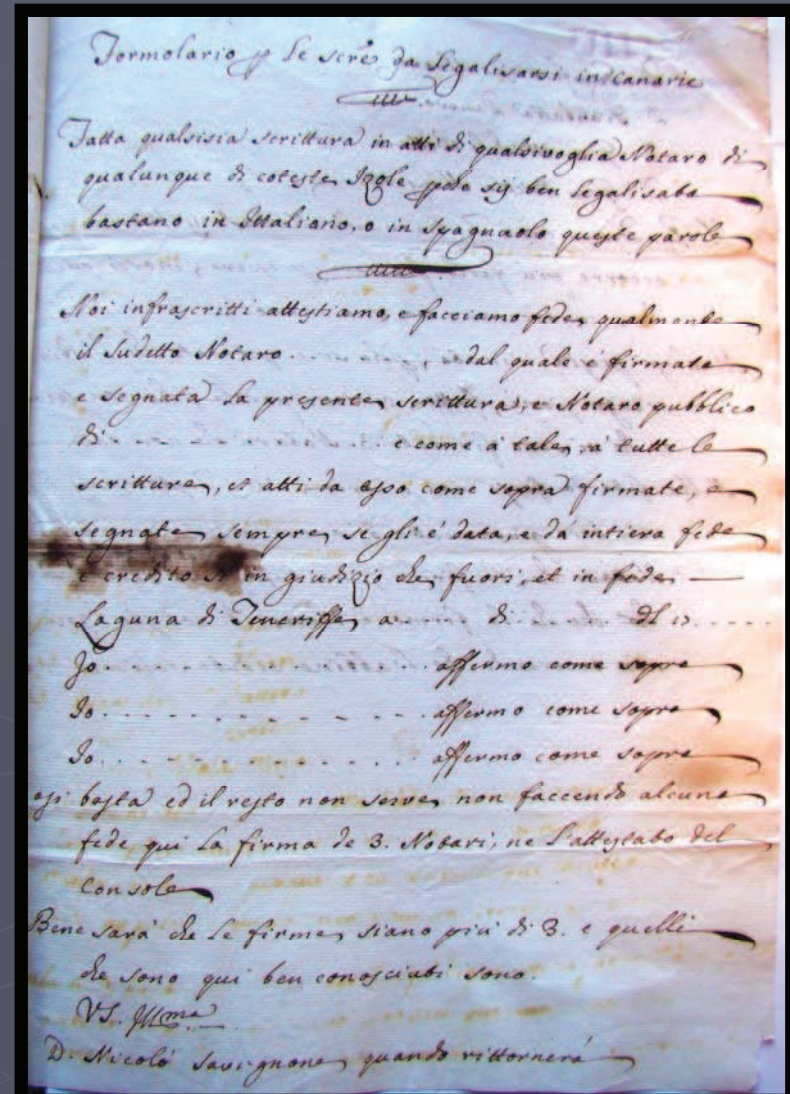 Formolario p le scre da Legalisarsi in Canarie
Fatta qualsisia scrittura in atti di qualsivoglia Notaro di
qualunque di coteste Izole sij ben Legalisata
bastano in Ittaliano, o in spagnuolo queste parole
Noi infrascritti attestiamo, e facciamo fede, qualmente
il Sudetto Notaro . . . . dal quale è firmata
e segnata la presente scrittura, e Notaro pubblico
di . . . . . e come à tale, à tutte le
scritture, et atti da esso come sopra firmate, e
segnate sempre se gli é data, e dá intiera fede
e credito in giudizio che fuori, et in fede, —
Laguna di Teneriffe, a . . . di . . . . .
Io . . . . . . . . . . . affermo come sopra
Io . . . . . . . . . . . affermo come sopra
Io . . . . . . . . . . . affermo come sopra
basta ed il resto non serve, non faccendo alcuna
fede qui la firma de 3. Notari, ne L'attestato del
Console
Bene sará che le firme siano piú di 3. e quelli
che sono qui ben conosciuti sono.
VS. Illma
D. Nicoló Savignone, quando rittornerá